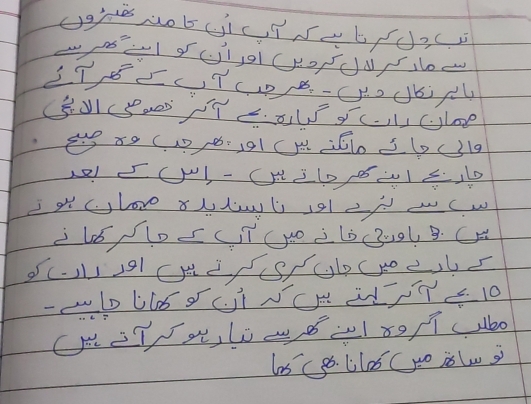 تب دل کرتا ہے کہ آپ اُن کا منہ تھپڑوں
سے مار کر لال کر دیں اور اُن کو اپنے گھر سے
باہر نکال دیں - پھر جب آپ کے گھر آئے
مہمان رات کو گیارہ بجے آکر خصوصی الائچی
والی چائے مانگتے ہیں اور پھر جب وہ صبح
چار بجے اپنے گھر جاتے ہیں - اِس کے بعد
سب سے بُرے اور ناپسندیدہ مہمان ہوتے
ہیں جو باورچی خانے میں آپ کے جا کر کھانے
کے بارے میں جان کری کرتے ہیں اور رات کو
10 بجے آکر کہتے ہیں کہ اُن کو کھانا چاہیے -
مطلب اگر وہ اپنے گھر سے تیار ہو کر آتے ہیں
تو ساتھ میں کھانا بھی کھا